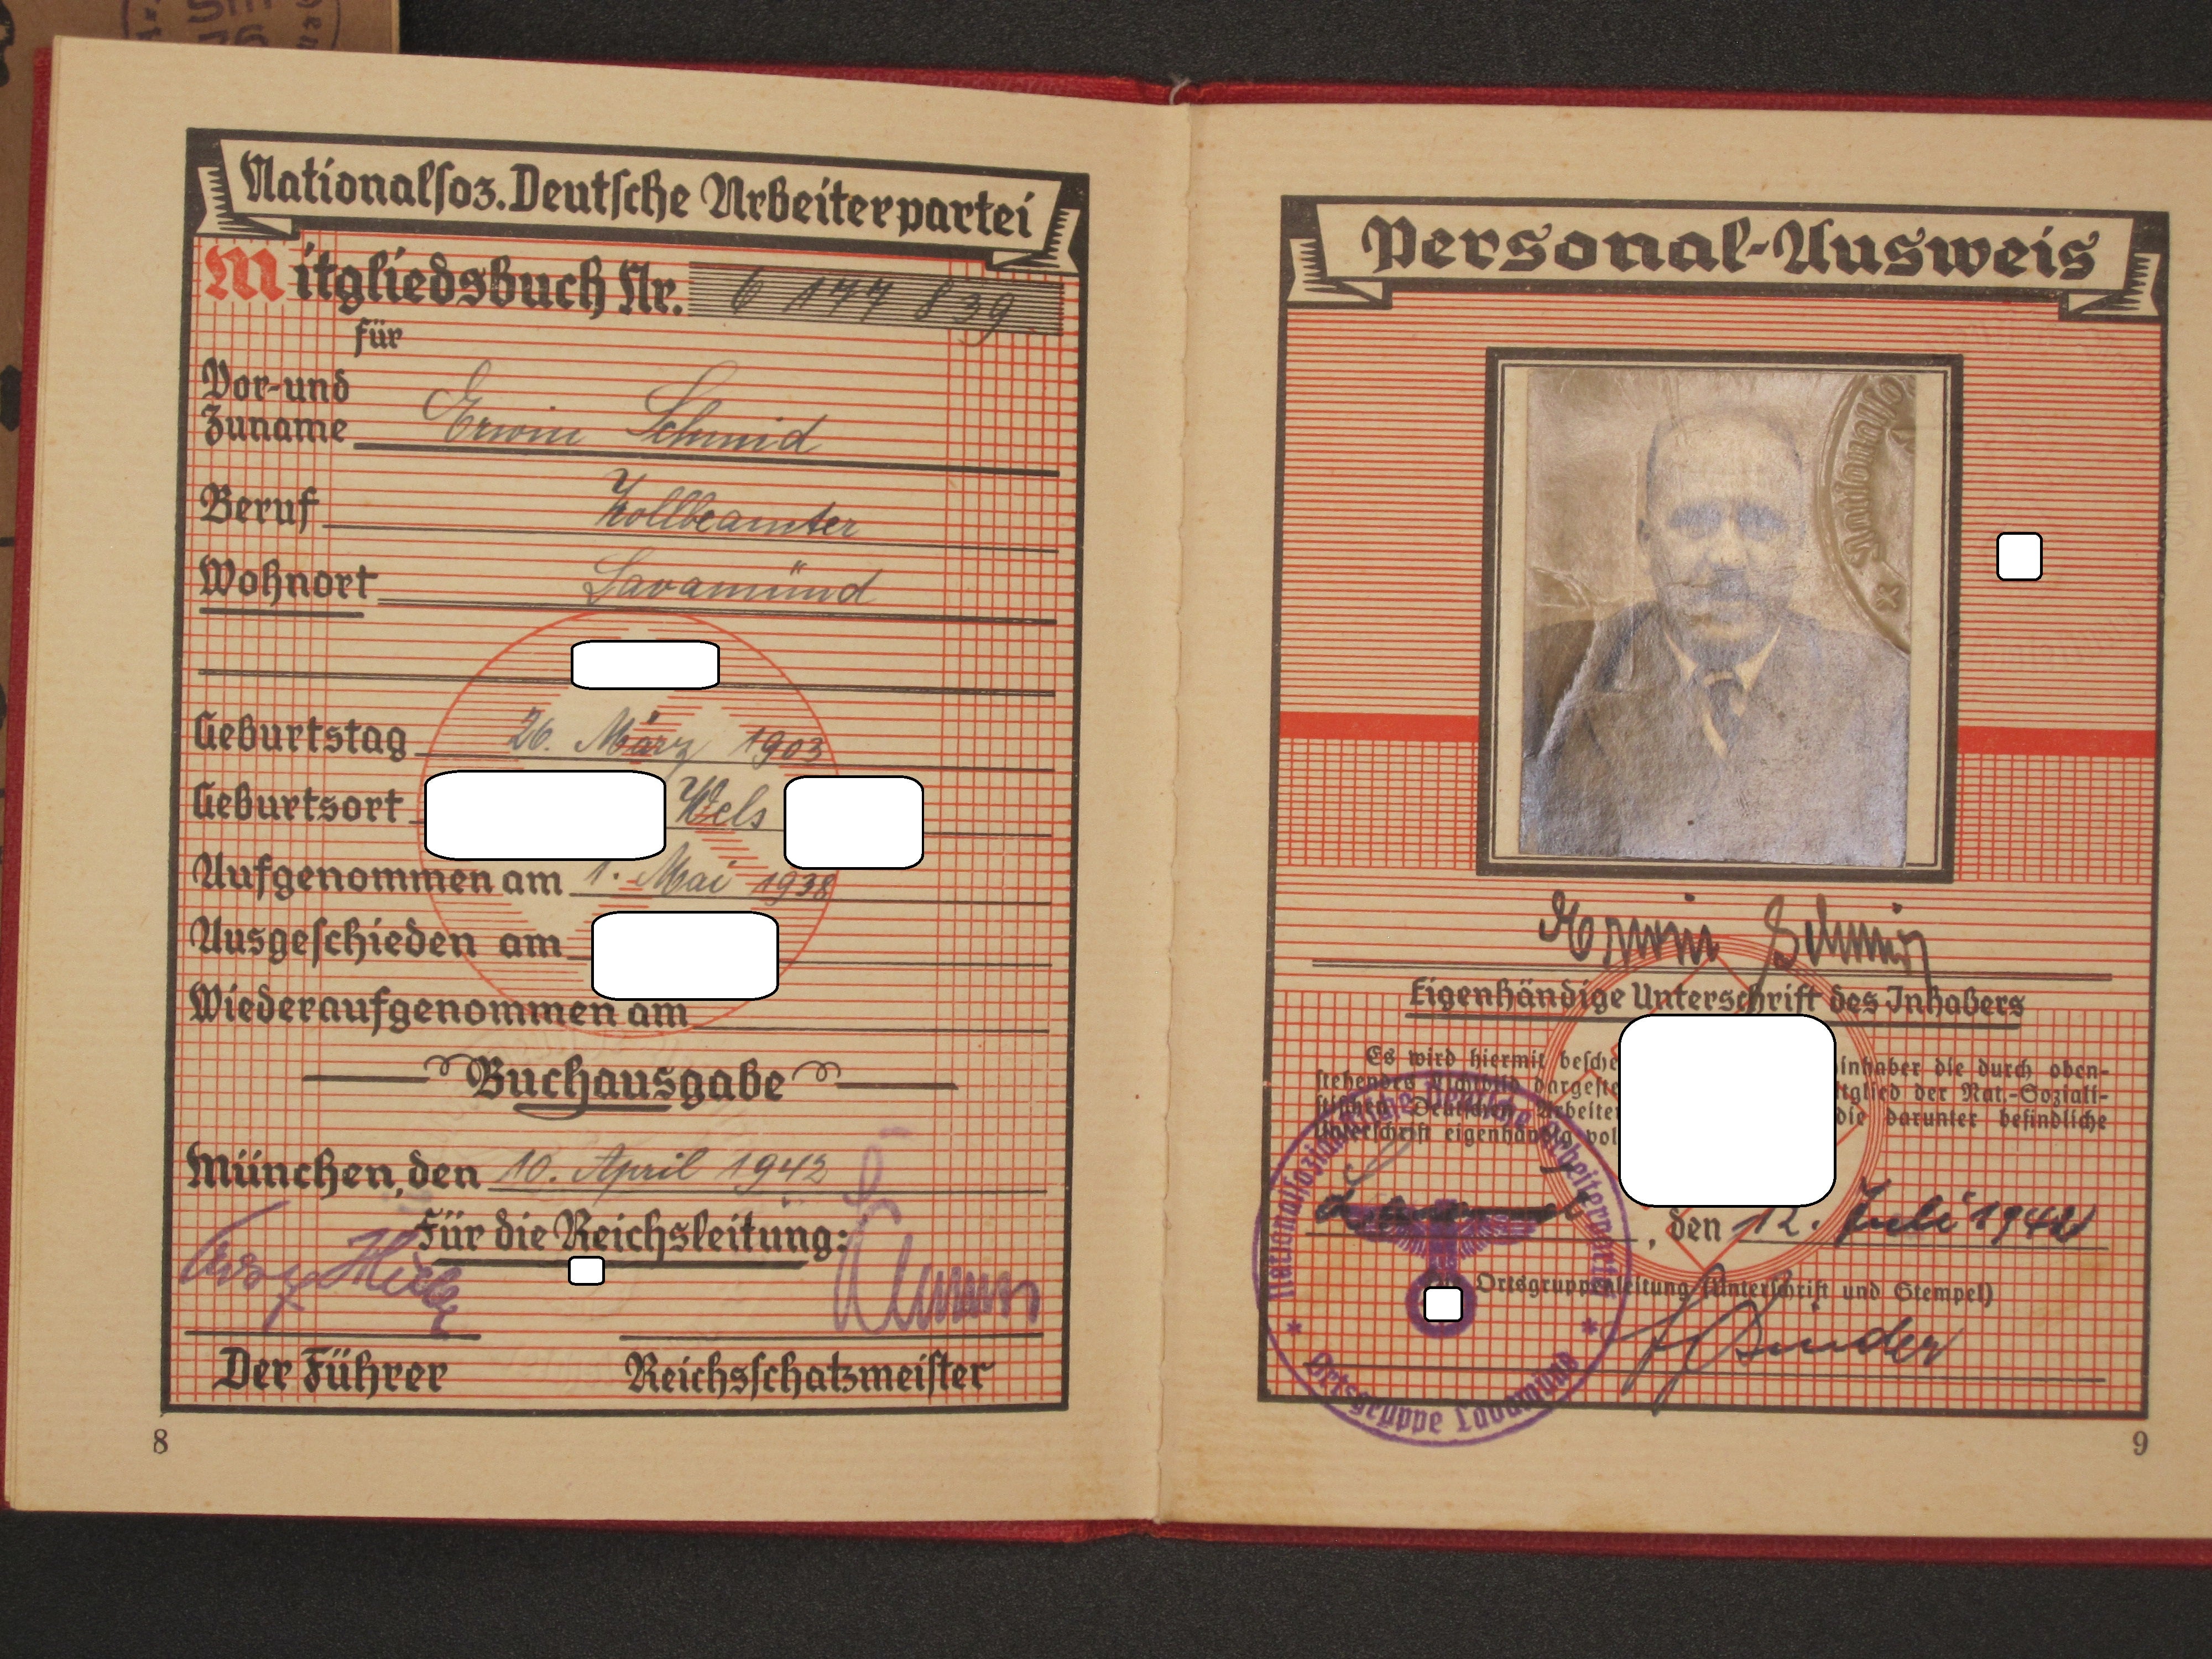 Nationalsoz. Deutsche Arbeiterpartei
Mitgliedsbuch Nr. 6 177 839
für
Vor- und Zuname Erwin Schmid
Beruf Zollbeamter
Wohnort Lavamünd
Geburtstag 26. März 1903
Geburtsort Wels
Aufgenommen am 1. Mai 1938
Ausgeschieden am
Wiederaufgenommen am
Buchausgabe
München, den 10. April 1942
Für die Reichsleitung:
Der Führer Reichsschatzmeister
8
Personal-Ausweis
Nationalso
Erwin Schmid
Eigenhändige Unterschrift des Inhabers
Es wird hiermit besche inhaber die durch oben-
stehendes Lichtbild dargeste itglied der Nat.-Soziali-
stischen Deutschen Arbeiter die darunter befindliche
Unterschrift eigenhändig vol
, den 12. Juli 1942
Ortsgruppenleitung (Unterschrift und Stempel)
Nationalsozialistische Deutsche Arbeiterpartei
Ortsgruppe Lavamünd
9